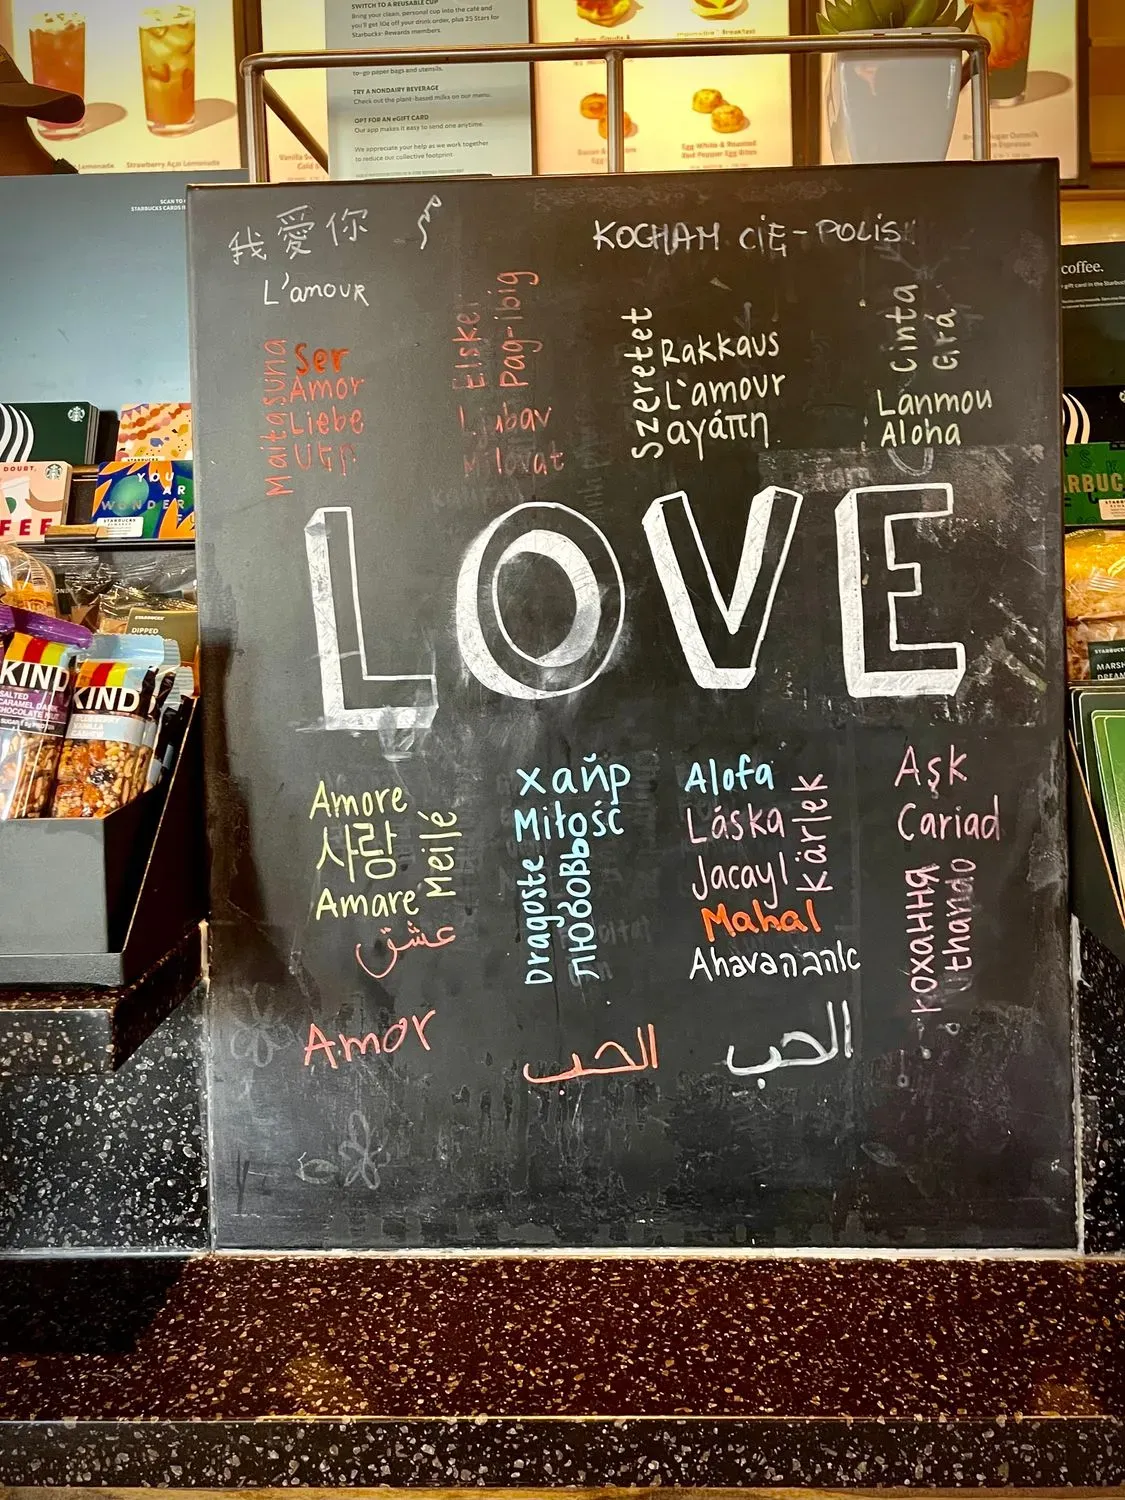 SWITCH TO A REUSABLE CUP
Bring your clean, personal cup into the café and
you'll get 10¢ off your drink order, plus 25 Stars for
Starbucks® Rewards members.
to-go paper bags and utensils.
TRY A NONDAIRY BEVERAGE
Check out the plant-based milks on our menu.
OPT FOR AN eGIFT CARD
Our app makes it easy to send one anytime.
We appreciate your help as we work together
to reduce our collective footprint
Lemonade
Strawberry Açaí Lemonade
Egg White & Roasted
Red Pepper Egg Bites
SCAN TO
STARBUCKS CARDS
coffee.
我愛你
KOCHAM CIĘ - POLISH
L'amour
Maitasuna
Ser
Amor
Liebe
Սեր
Elsker
Pag-ibig
Ljubav
Milovat
Szeretet
Rakkaus
L'amour
αγάπη
Cinta
Grá
Lanmou
Aloha
LOVE
Amore
사랑
Amare
Meilé
عشق
хайр
Miłość
Dragoste
любовь
Alofa
Láska
Jacayl
Kärlek
Mahal
Ahava אהבה
Aşk
Cariad
кохання
Uthando
Amor
الحب
الحب
DOUBT,
FEE
YOU
AR
WONDER
KIND
SALTED
CARAMEL DARK
CHOCOLATE NUT
KIND
DIPPED
RBUC
MARSH
DREAM